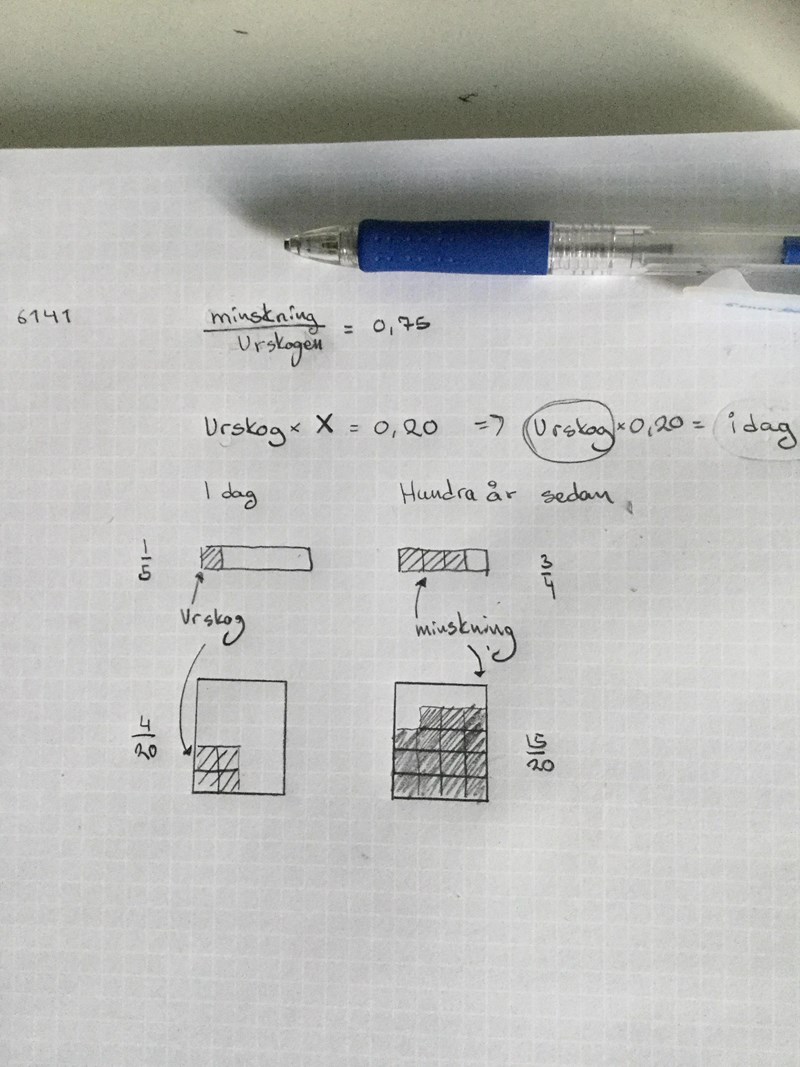 6141
minskning
Urskogen = 0,75
Urskog × X = 0,20 => Urskog × 0,20 = idag
I dag Hundra år sedan
1
5
3
4
Urskog
minskning
4
20
15
20